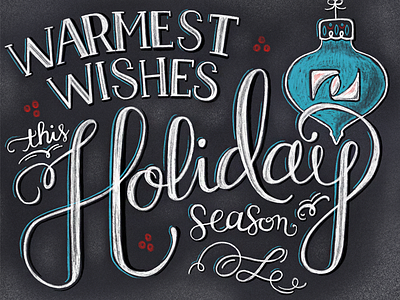 WARMEST
WISHES
this
Holiday
season